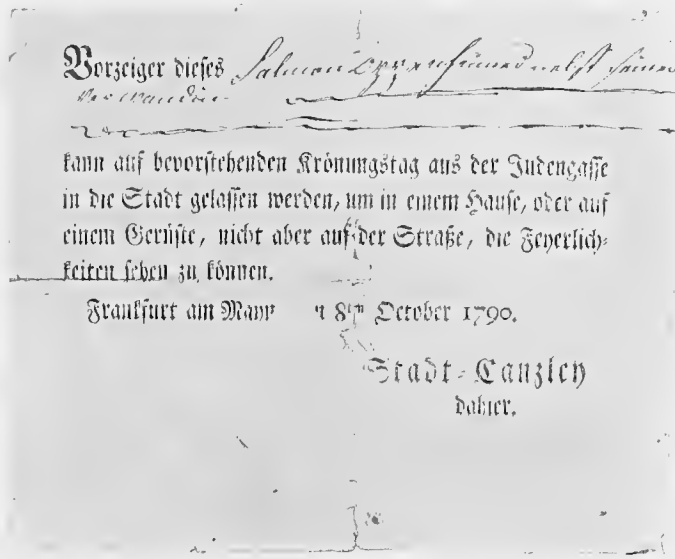 Vorzeiger dieses Salmon Oppenheimer nebst seinen
kann auf bevorstehenden Krönungstag aus der Judengasse
in die Stadt gelassen werden, um in einem Hause, oder auf
einem Gerüste, nicht aber auf der Straße, die Feyerlich-
keiten sehen zu können.
Frankfurt am Mayn 8ten October 1790.
Stadt-Canzley
dahier.